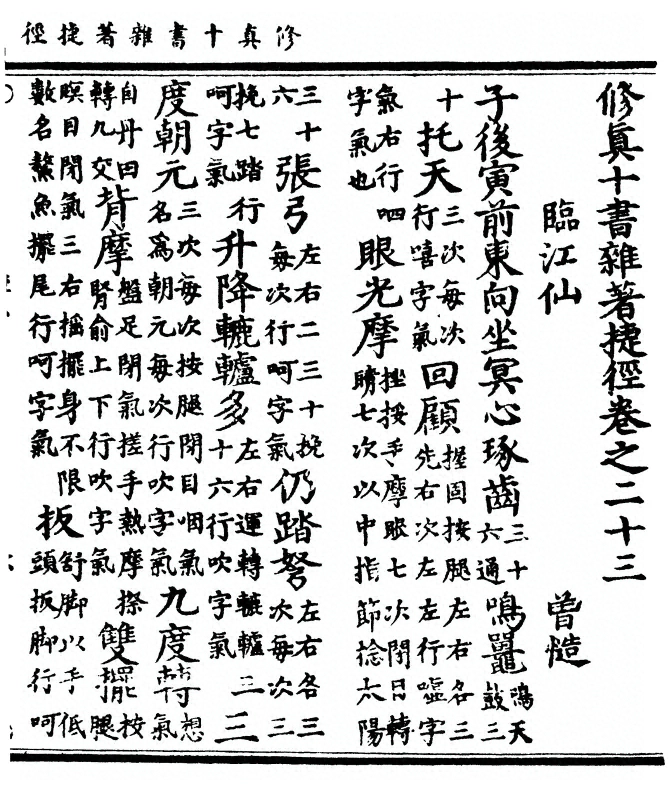 修真十書雜著捷徑
修真十書雜著捷徑卷之二十三
臨江仙 曾慥
子後寅前東向坐冥心琢齒三十六通鳴鼉鳴天鼓三
十托天三次每次行嘻字氣回顧握固按腿左右各三先右次左左行噓字
氣右行呬字氣也眼光摩挫按手摩眼七次閉目轉睛七次以中指節捻太陽
三十六張弓左右二三十挽每次行呵字氣仍踏弩左右各三次每次三
挽七踏行呵字氣升降轆轤多左右運轉轆轤三十六行吹字氣三
度朝元三次每次按腿閉目咽氣名爲朝元每次行吹字氣九度轉想氣
自丹田轉九交背摩盤足閉氣搓手熱摩擦腎俞上下行吹字氣雙擺按腿
瞑目閉氣三右搖擺身不限數名鰲魚擺尾行呵字氣扳舒脚以手低頭扳脚行呵